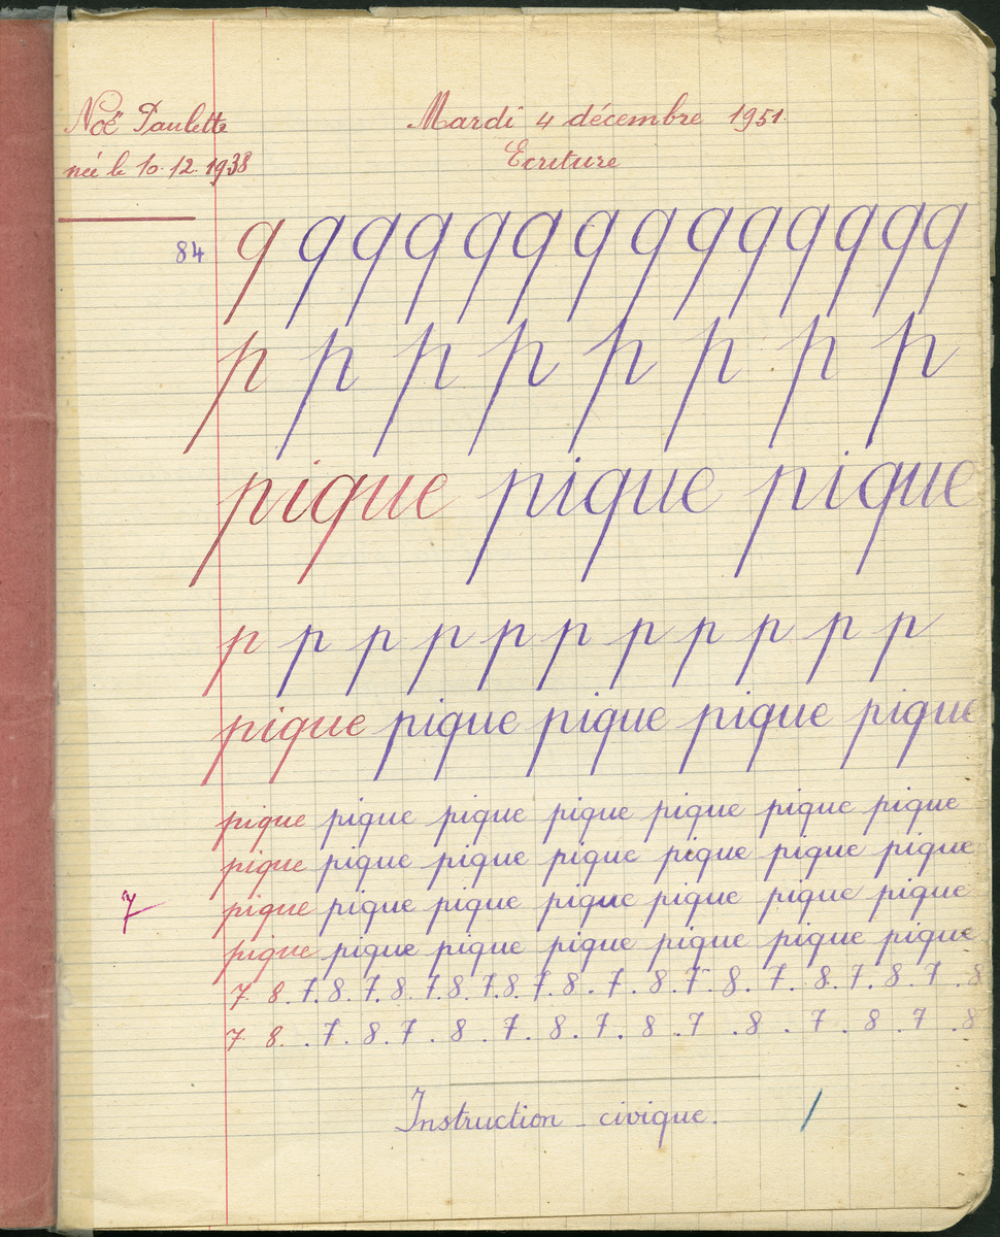 Noë Paulette
née le 10.12.1938
Mardi 4 décembre 1951.
Ecriture
84
q q q q q q q q q q q q q q
p p p p p p p p
pique pique pique
p p p p p p p p p p p
pique pique pique pique pique
pique pique pique pique pique pique pique
pique pique pique pique pique pique pique
7 pique pique pique pique pique pique pique
pique pique pique pique pique pique pique
7. 8. 7. 8. 7. 8. 7. 8. 7. 8. 7. 8. 7. 8. 7. 8. 7. 8. 7. 8. 7. 8. 7. 8
7. 8. . 7. 8. 7. 8. 7. 8. 7. 8. 7. 8. 7. 8. 7. 8
Instruction civique. /